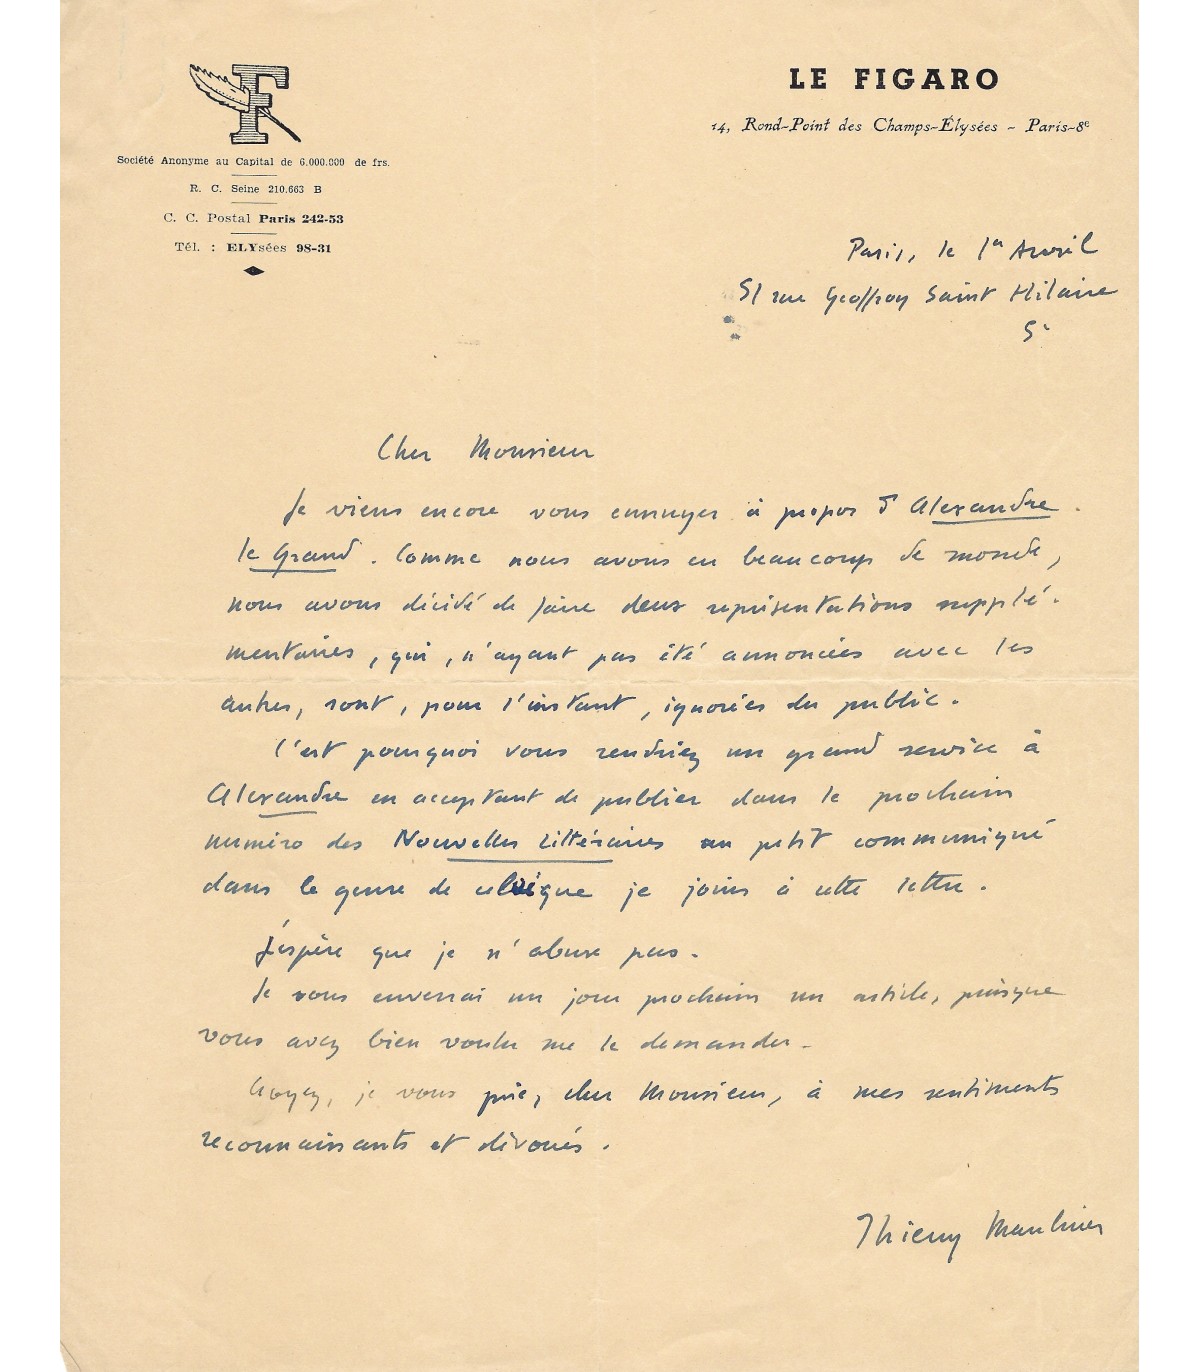 F
Société Anonyme au Capital de 6.000.000 de frs.
R. C. Seine 210.663 B
C. C. Postal Paris 242-53
Tél. : ELYsées 98-31
LE FIGARO
14, Rond-Point des Champs-Élysées - Paris-8e
Paris, le 1er Avril
51 rue Geoffroy Saint Hilaire
5e
Cher Monsieur
Je viens encore vous ennuyer à propos d'Alexandre
le Grand. Comme nous avons eu beaucoup de monde,
nous avons décidé de faire deux représentations supplé-
mentaires, qui, n'ayant pas été annoncées avec les
autres, sont, pour l'instant, ignorées du public.
C'est pourquoi vous rendriez un grand service à
Alexandre en acceptant de publier dans le prochain
numéro des Nouvelles Littéraires un petit communiqué
dans le genre de celui que je joins à cette lettre.
J'espère que je n'abuse pas.
Je vous enverrai un jour prochain un article, puisque
vous avez bien voulu me le demander.
Croyez, je vous prie, cher Monsieur, à mes sentiments
reconnaissants et dévoués.
Thierry Maulnier